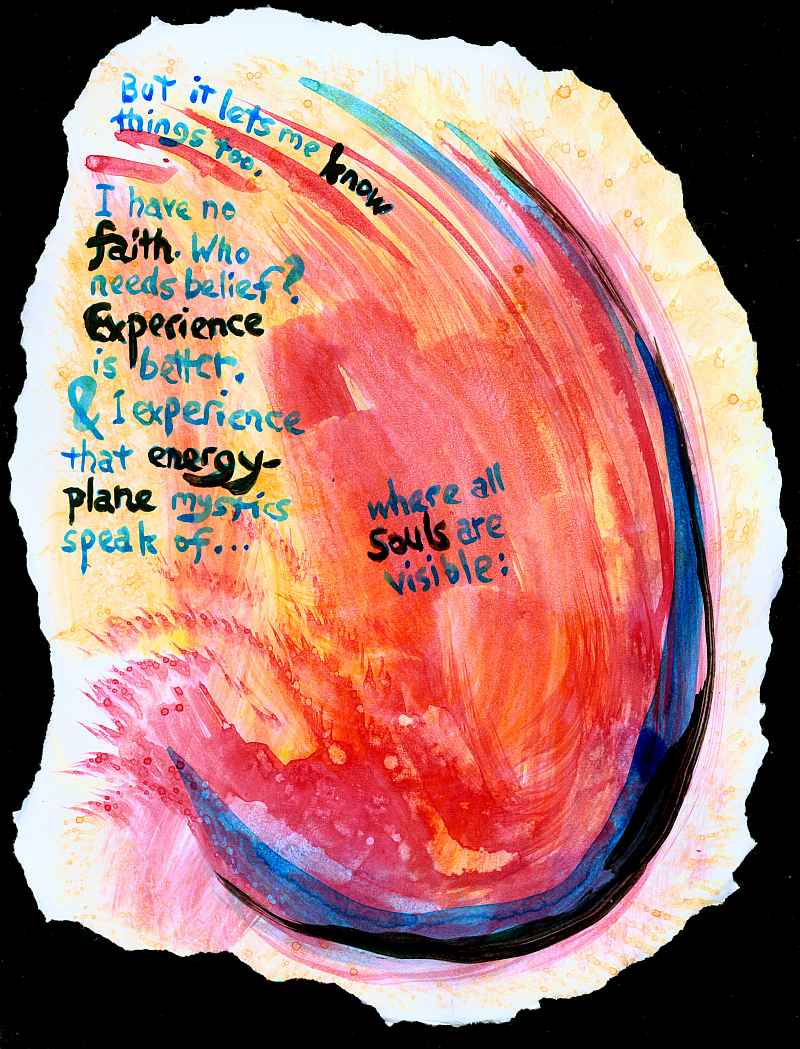 But it lets me know
things too.
I have no
faith. Who
needs belief?
Experience
is better.
& I experience
that energy-
plane mystics
speak of...
where all
souls are
visible: